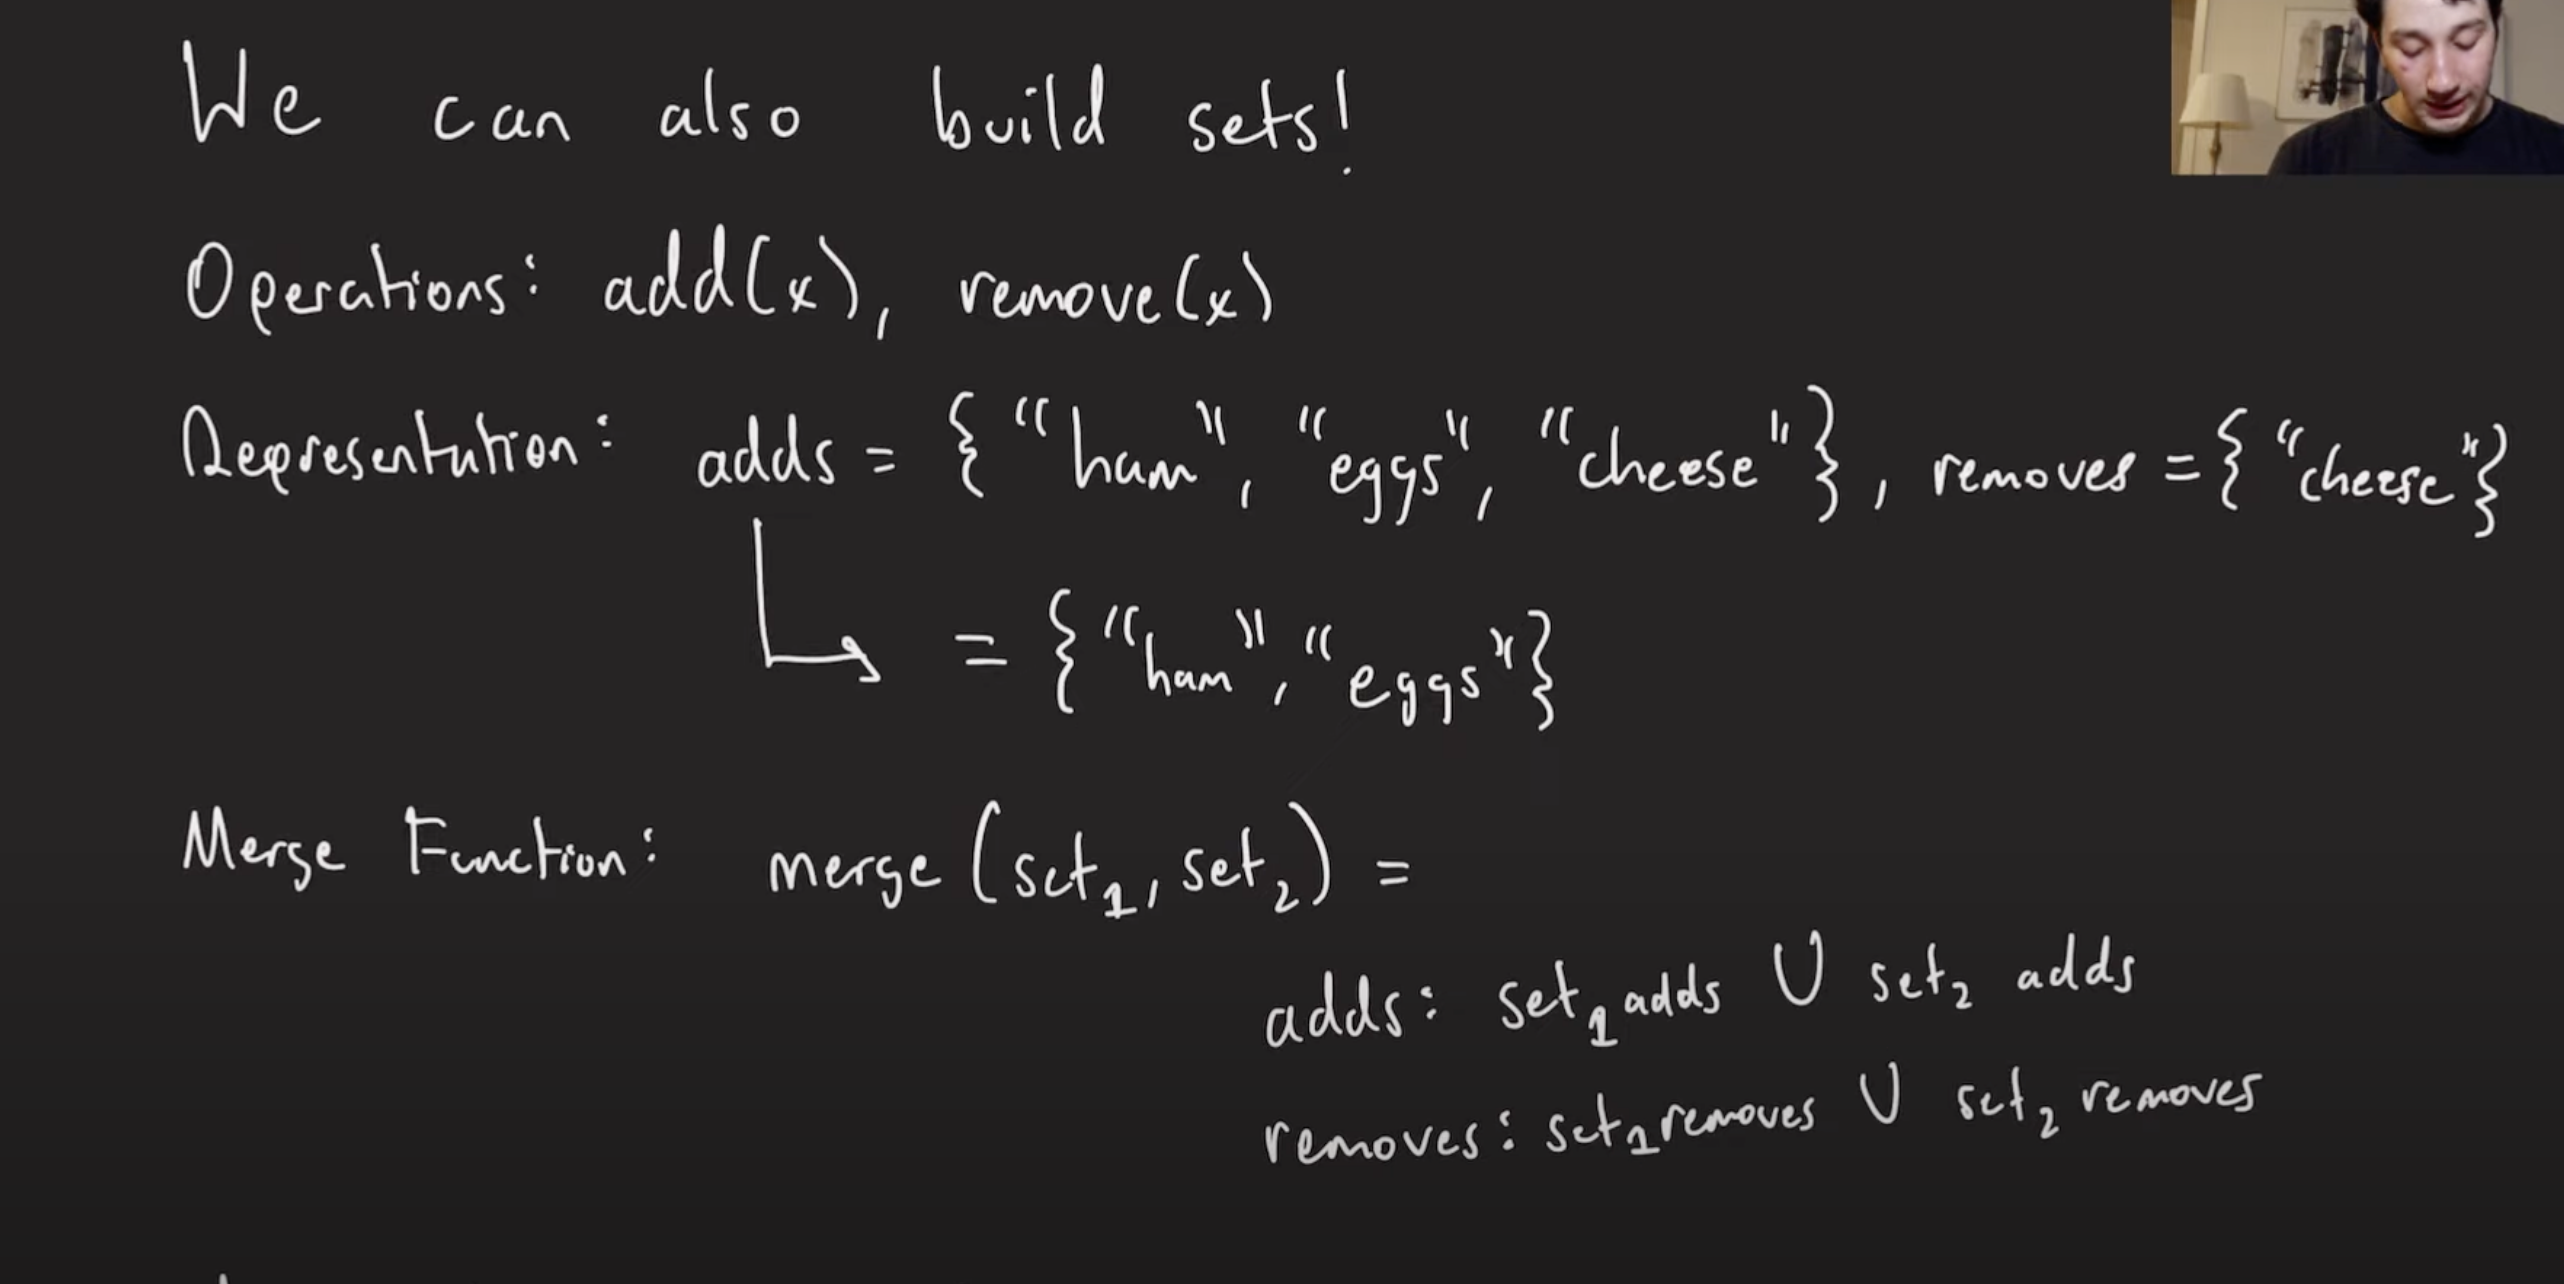 We can also build sets!
Operations: add(x), remove(x)
Representation: adds = {"ham", "eggs", "cheese"}, removes = {"cheese"}
= {"ham", "eggs"}
Merge Function: merge(set₁, set₂) =
adds: set₁ adds ∪ set₂ adds
removes: set₁ removes ∪ set₂ removes